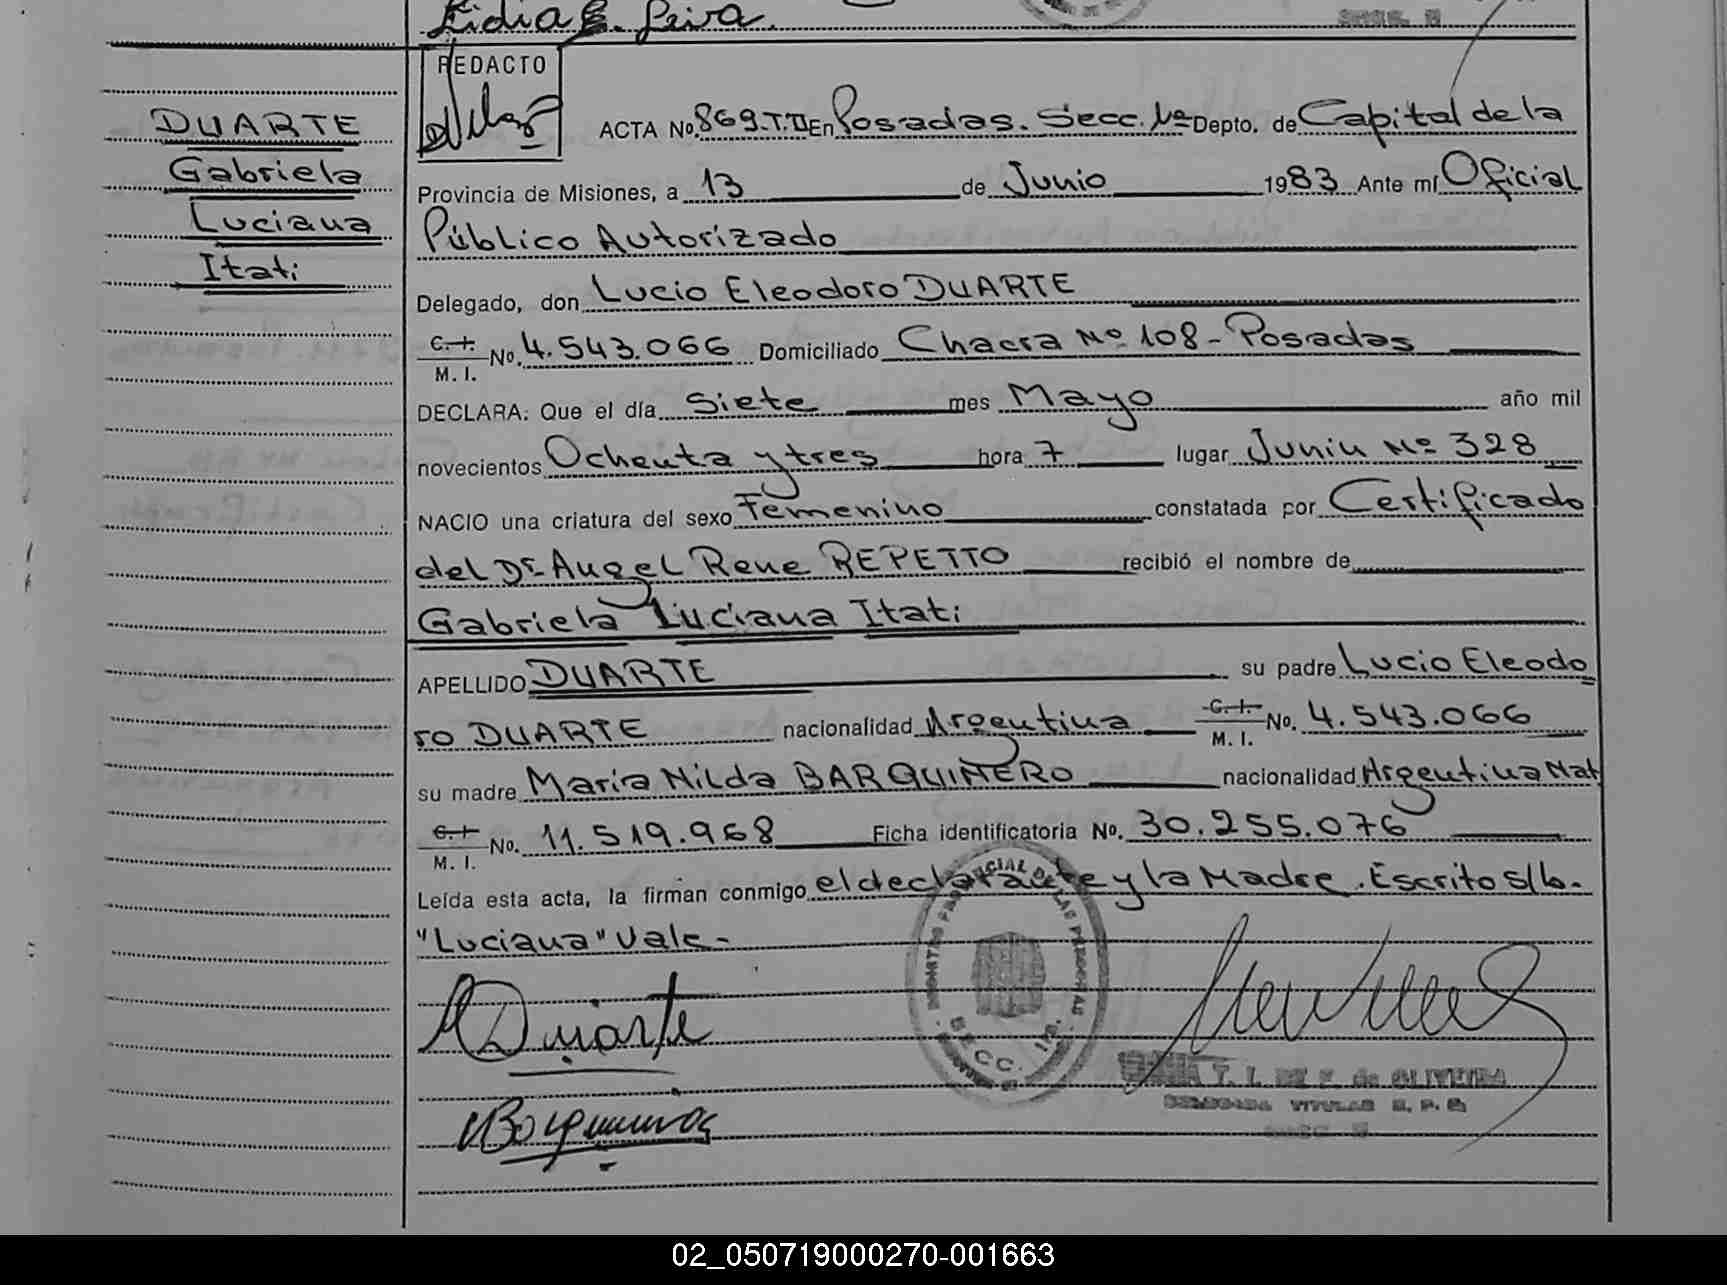 Lidia E. Leiva.
REDACTO
DUARTE
Gabriela
Luciana
Itati
ACTA No. 869.T.II En Posadas. Secc. 1ª Depto. de Capital de la
Provincia de Misiones, a 13 de Junio 1983 Ante mí Oficial
Público Autorizado
Delegado, don Lucio Eleodoro DUARTE
C. I.
M. I. No. 4.543.066 Domiciliado Chacra Nº 108 - Posadas
DECLARA: Que el día Siete mes Mayo año mil
novecientos Ochenta y tres hora 7 lugar Junin Nº 328
NACIO una criatura del sexo Femenino constatada por Certificado
del Dr. Angel Rene REPETTO recibió el nombre de
Gabriela Luciana Itati
APELLIDO DUARTE su padre Lucio Eleodo
ro DUARTE nacionalidad Argentina C. I.
M. I. No. 4.543.066
su madre Maria Nilda BARQUIÑERO nacionalidad Argentina Mat
C. I.
M. I. No. 11.519.968 Ficha identificatoria No. 30.255.076
Leída esta acta, la firman conmigo el declarante y la Madre. Escrito s/b.
"Luciana" Vale-
Duarte
SECC. 1ra.
T. I. DE F. de OLIVEIRA
DELEGADA TITULAR R. P. P.
02_050719000270-001663